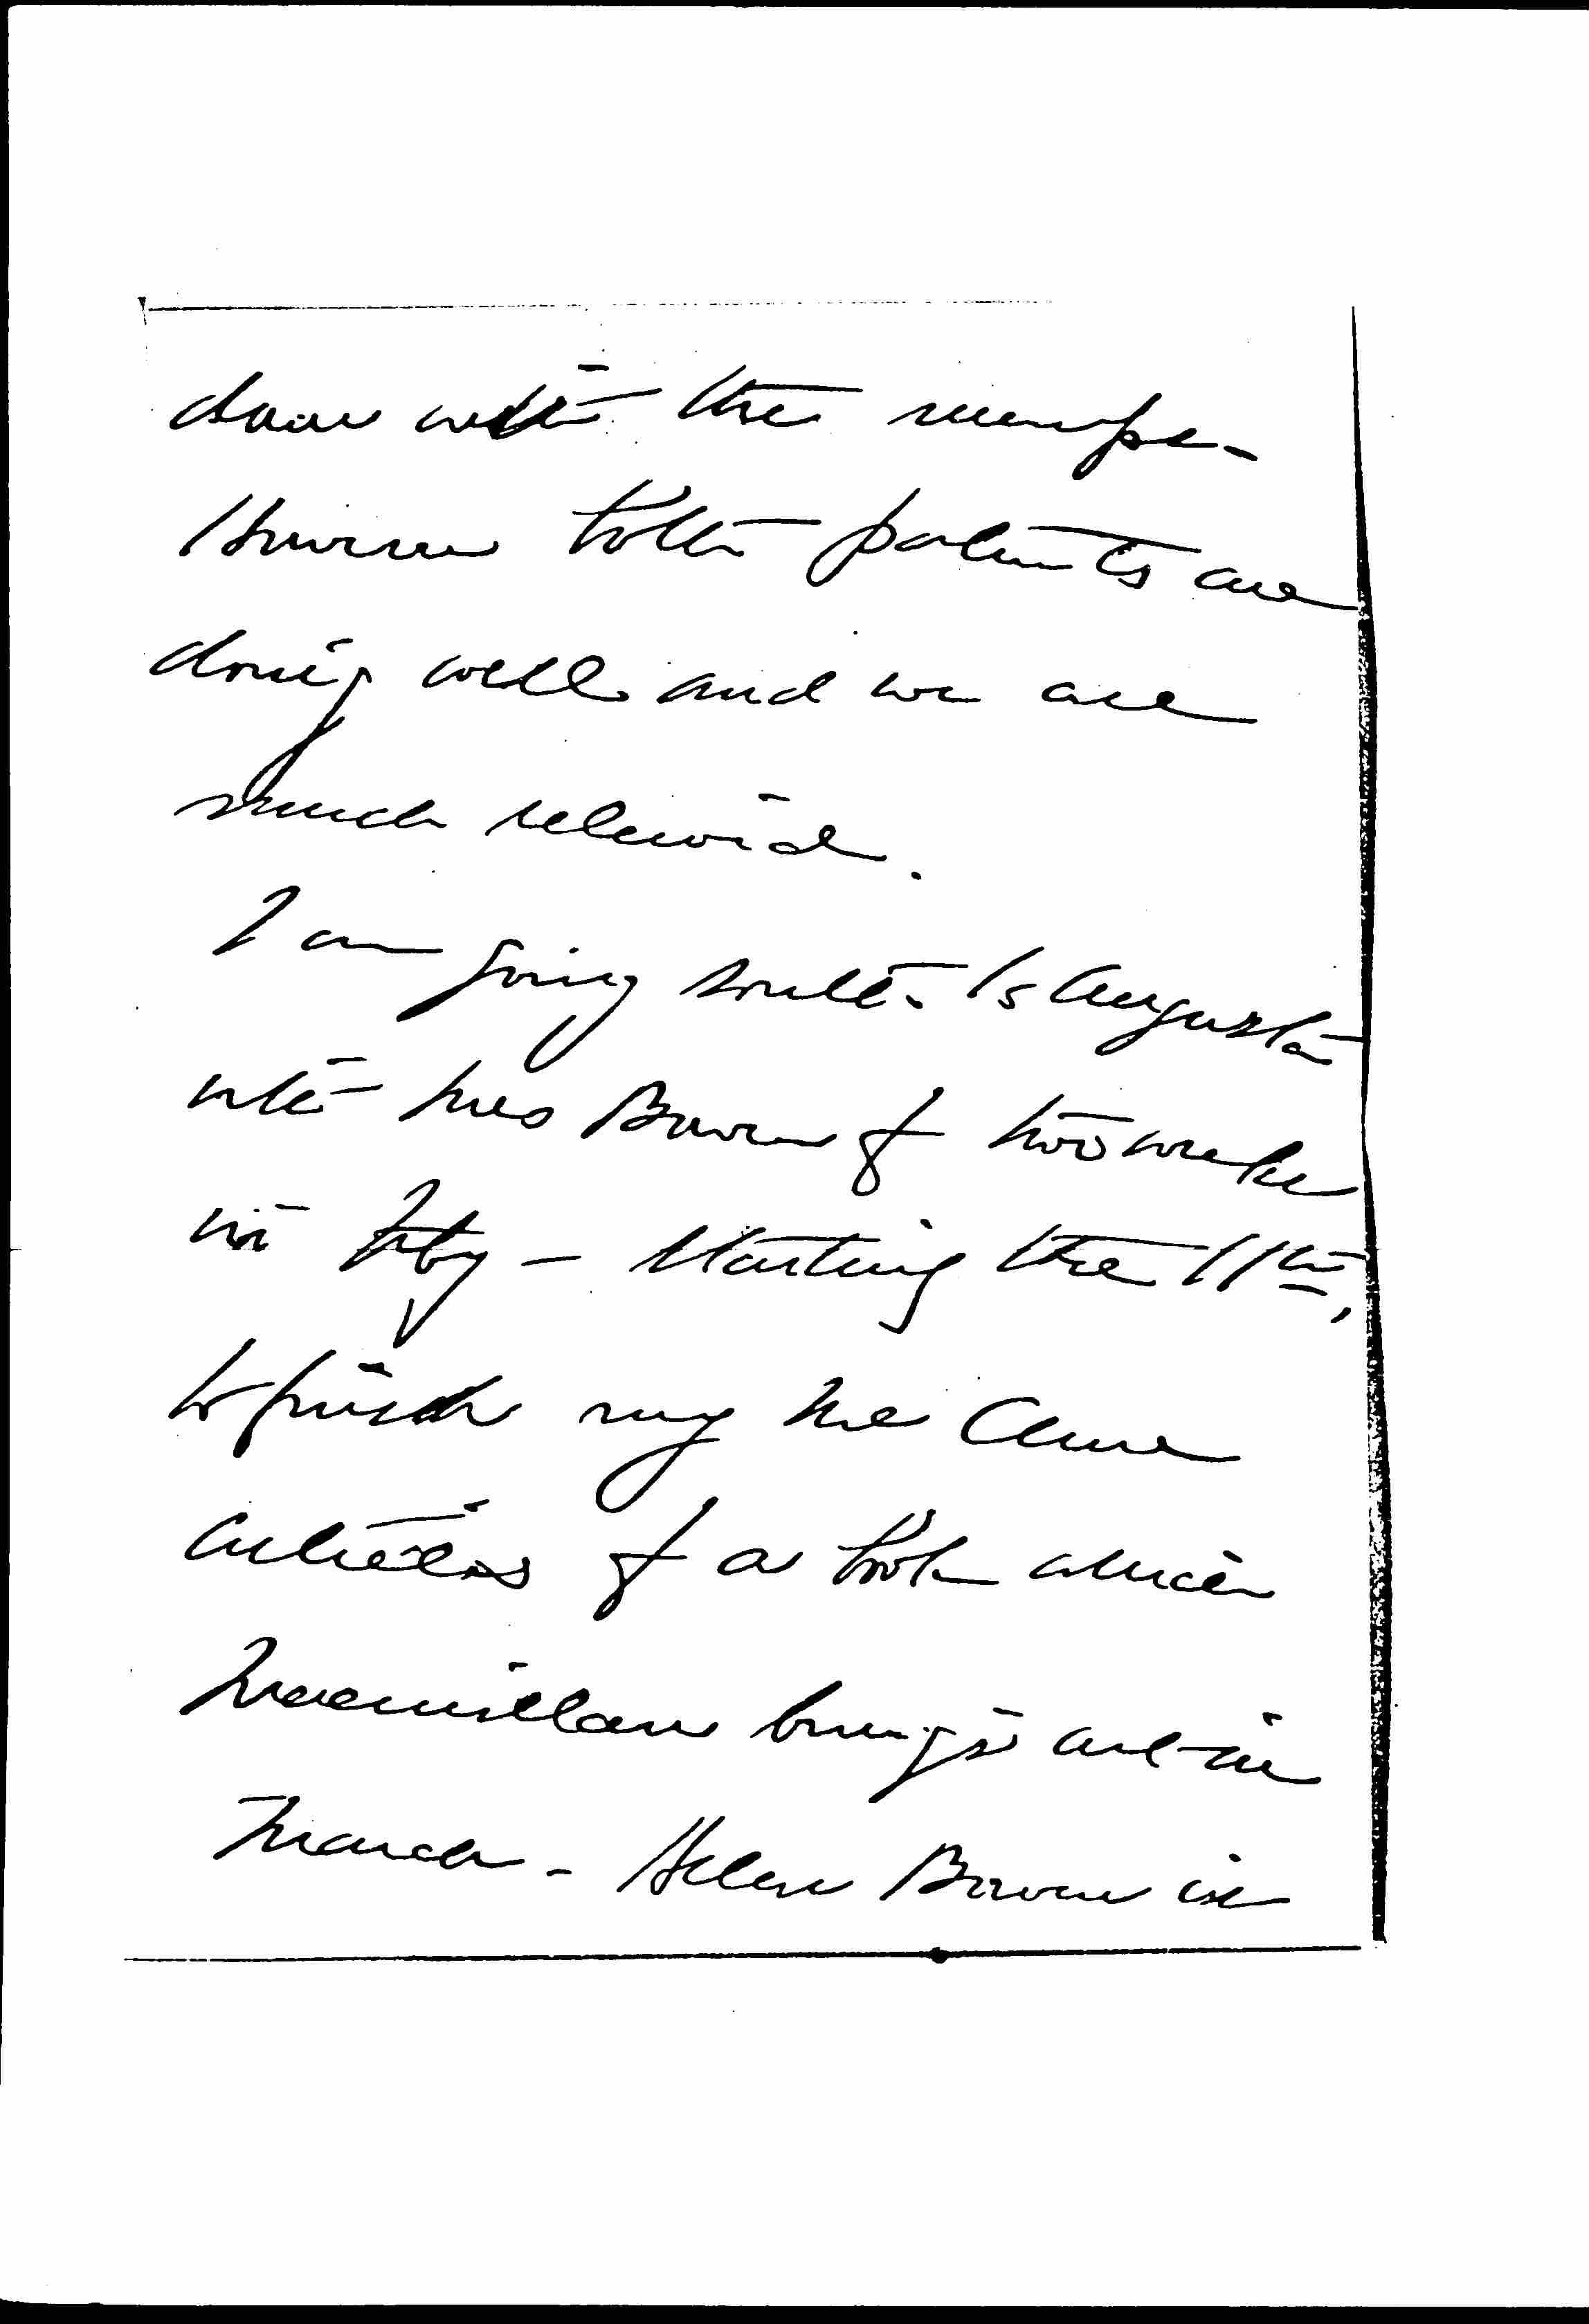 down with the mumps -
However both patients are
doing well and we are
much relieved.
I am going south to Augusta
with Mrs Brown for two weeks
in Feby - starting the 11th,
to finish my McClure
articles for a book which
Macmillan brings out in
March - Helen Brown is